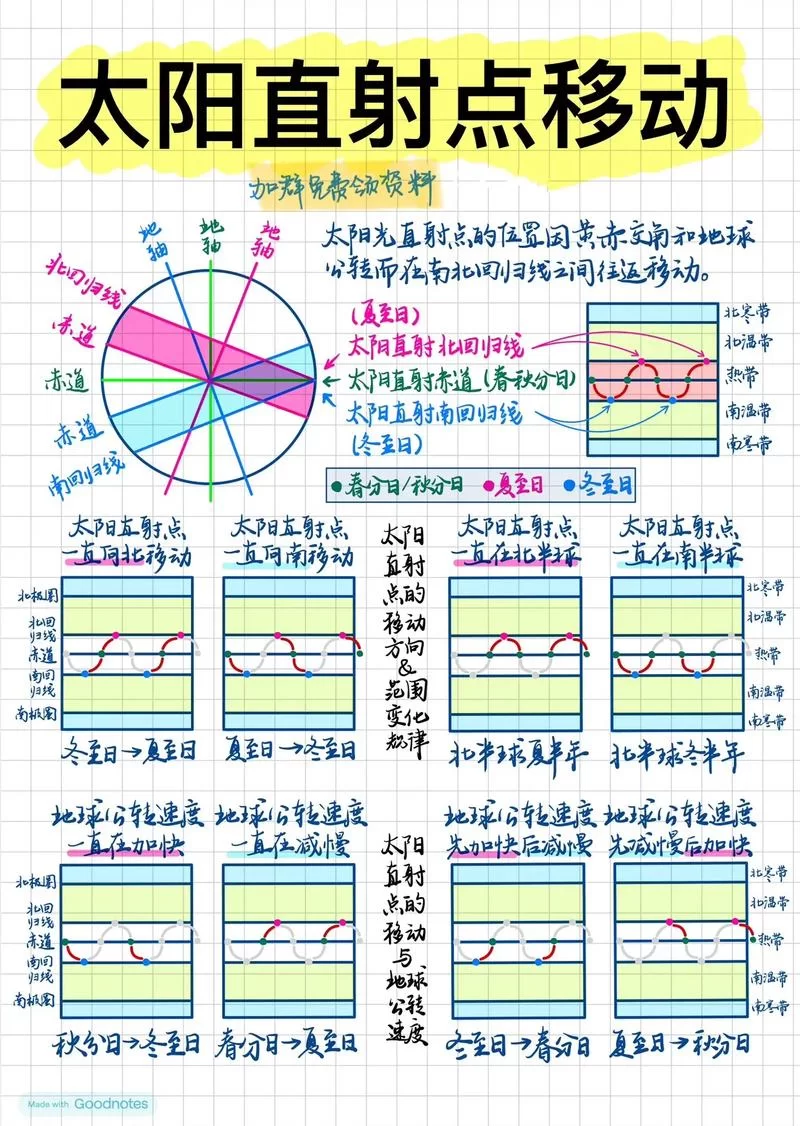 太阳直射点移动
加群免费领资料
地轴
地轴
地轴
太阳光直射点的位置因黄赤交角和地球
公转而在南北回归线之间往返移动。
北回归线
赤道
赤道
赤道
南回归线
(夏至日)
太阳直射北回归线
太阳直射赤道(春秋分日)
太阳直射南回归线
(冬至日)
北寒带
北温带
热带
南温带
南寒带
春分日/秋分日
夏至日
冬至日
太阳直射点
一直向北移动
太阳直射点
一直向南移动
太阳直射点的移动方向&范围变化规律
太阳直射点
一直在北半球
太阳直射点
一直在南半球
北极圈
北回
归线
赤道
南回
归线
南极圈
北寒带
北温带
热带
南温带
南寒带
冬至日→夏至日
夏至日→冬至日
北半球夏半年
北半球冬半年
地球公转速度
一直在加快
地球公转速度
一直在减慢
太阳直射点的移动与地球公转速度
地球公转速度
先加快后减慢
地球公转速度
先减慢后加快
北极圈
北回
归线
赤道
南回
归线
南极圈
北寒带
北温带
热带
南温带
南寒带
秋分日→冬至日
春分日→夏至日
冬至日→春分日
夏至日→秋分日
Made with Goodnotes